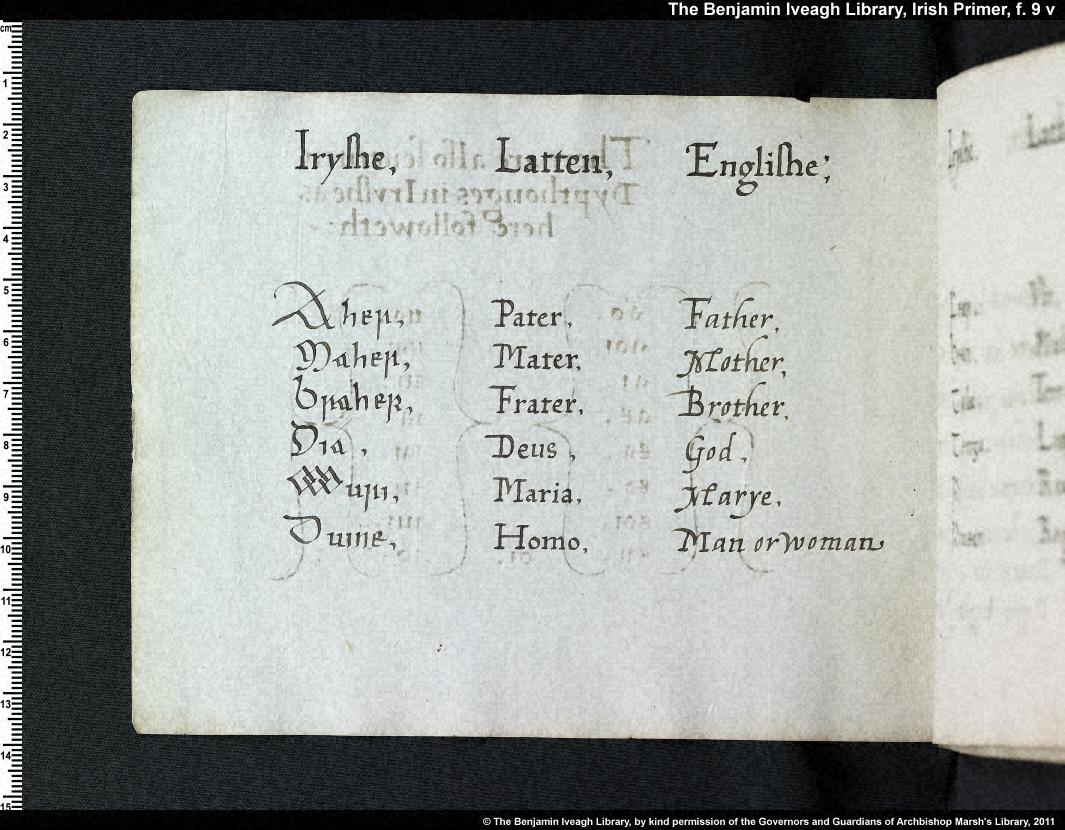 The Benjamin Iveagh Library, Irish Primer, f. 9 v
Iryſhe, Latten, Engliſhe;
Aher, Pater, Father,
Maher, Mater, Mother,
Braher, Frater, Brother,
Dia, Deus, God,
Muiri, Maria, Marye,
Duine, Homo, Man or woman
© The Benjamin Iveagh Library, by kind permission of the Governors and Guardians of Archbishop Marsh's Library, 2011